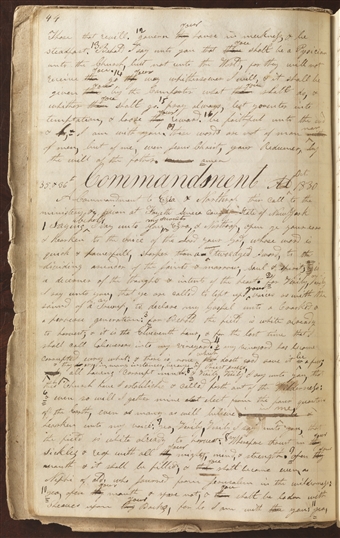 44
those that revile. govern thy house in meekness & be
steadfast. Behold I say unto you that thou shalt be a Physician
unto the Church but not unto the World, for they will not
receive thee go thy way whithersoever I will, & it shall be
given thee by the Comforter what thou shalt do, &
whither thou shalt go. pray always, lest you enter into
temptation, & loose thy reward. be faithful unto the end
& lo, I am with you. these words are not of man nor
of men, but of me, even Jesus Christ, your Redeemer, by
the will of the father. amen
Commandment AD 1830
A commandment to Ezra & Northrop their call to the
ministry &c given at Fayette Seneca County State of New York
Saying, I say unto you my servants Ezra, & Northrop, open ye your ears
& hearken to the voice of the Lord your God, whose word is
quick & powerful, sharper than a two edged sword, to the
dividing asunder of the joints & marrow, soul & spirit, & is
a discerner of the thoughts & intents of the heart. for verily verily
I say unto you that ye are called to lift up your voices as with the
sound of a trump, to declare my gospel unto a crooked &
perverse generation for behold the field is white already
to harvest, & it is the eleventh hour, & for the last time that I
shall call labourers into my vineyard & my vineyard has become
corrupted every whit, & there is none that doeth good save it be a few
& they err in many instances because of priest crafts,
all having corrupt minds & verily verily I say unto you that
this church have I established & called forth out of the wilderness:
& even so will I gather mine elect from the four quarters
of the Earth, even as many as will believe in me &
hearken unto my voice: yea, verily verily I say unto you, that
the field is white already to harvest: wherefore thrust in your
sickles & reap with all your might, mind, & strength. open your
mouth & it shall be filled, & you shall become even as
Nephi of old, who journied from Jerusalem in the wilderness:
yea, open your mouth & spare not, & you shall be laden with
sheaves upon your backs, for lo I am with you: yea,